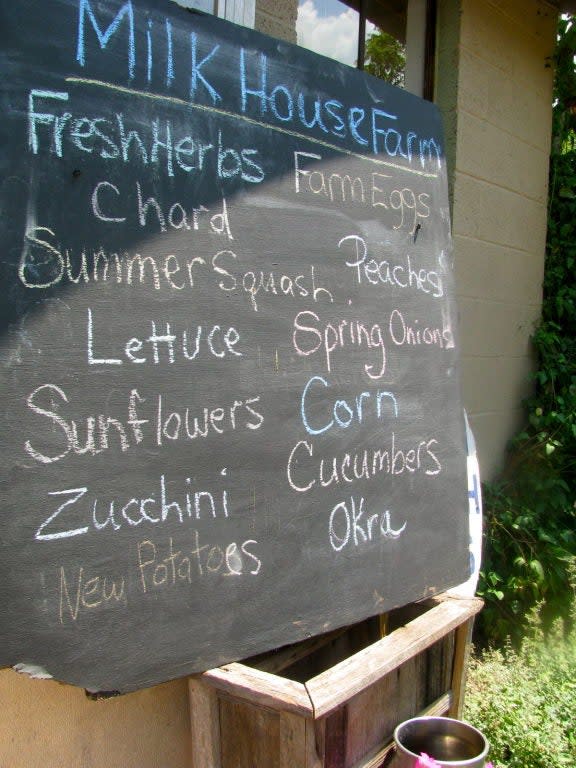 Milk House Farm
Fresh Herbs
Chard
Summer Squash
Lettuce
Sunflowers
Zucchini
New Potatoes
Farm Eggs
Peaches
Spring Onions
Corn
Cucumbers
Okra